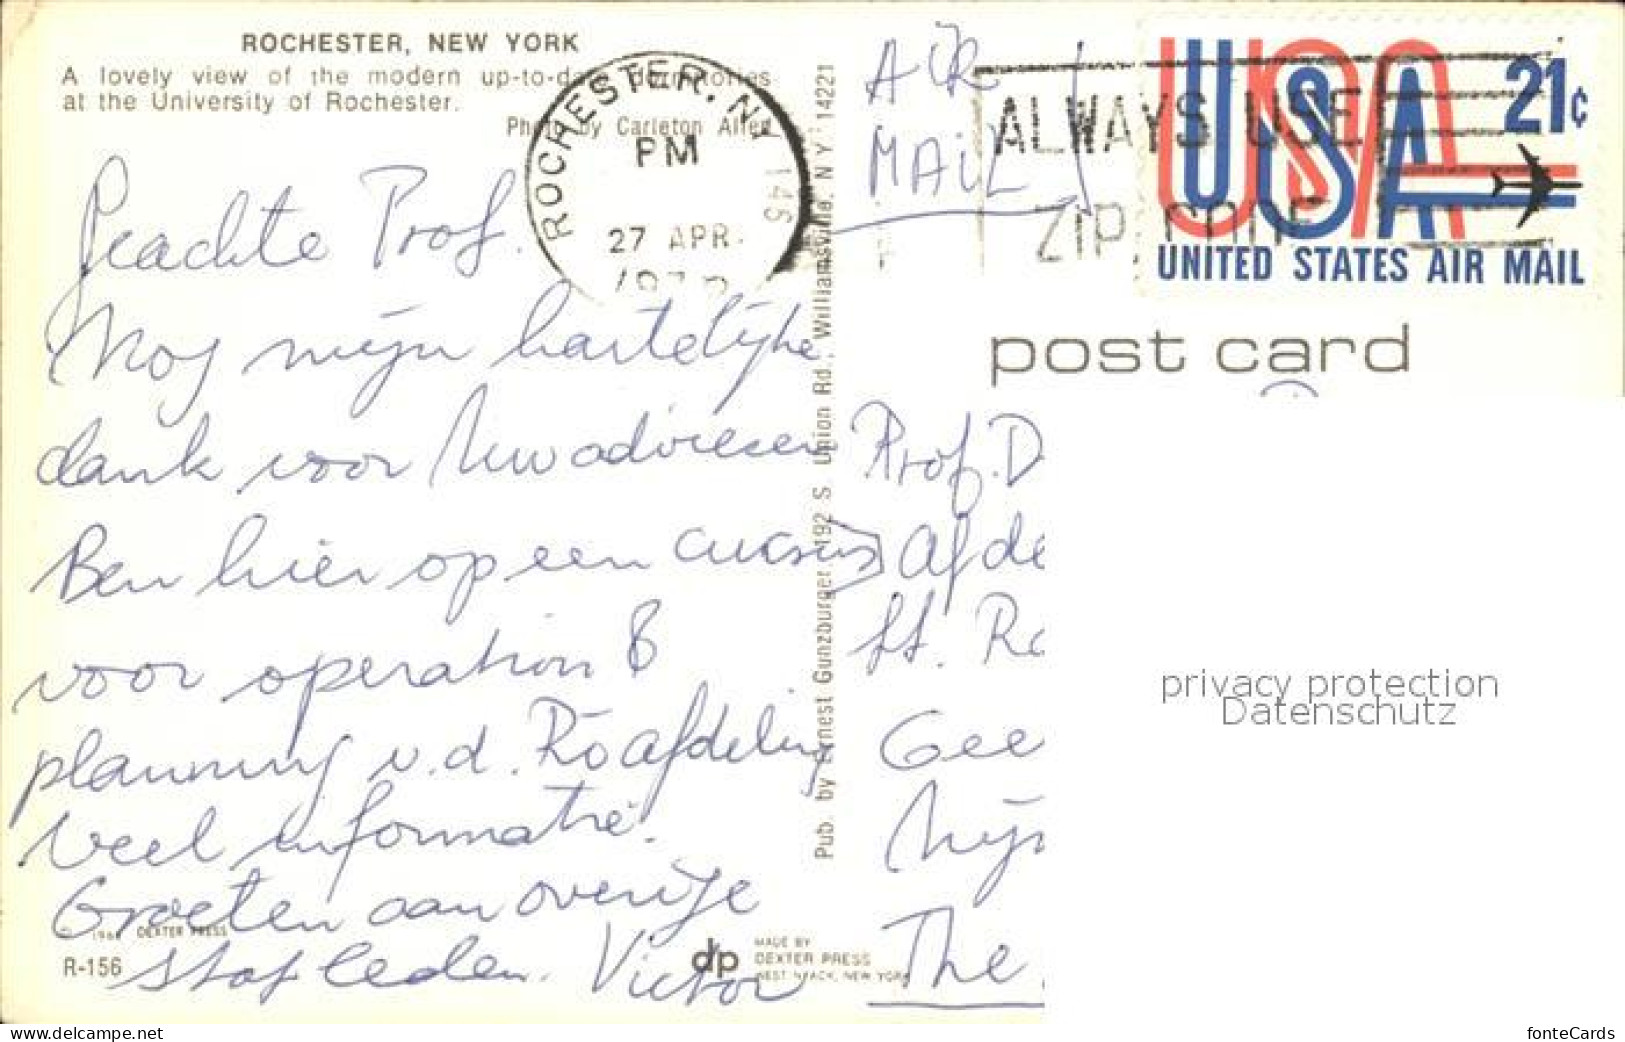 ROCHESTER, NEW YORK
A lovely view of the modern up-to-date dormitories
at the University of Rochester.
Photo by Carleton Allen
ROCHESTER, N.Y.
PM
27 APR
146
AIR
MAIL
ALWAYS USE
ZIP CODE
USA
21¢
UNITED STATES AIR MAIL
post card
Geachte Prof.
Nog mijn hartelijke
dank voor Uw adviezen
Ben hier op een cursus
voor operation &
planning v.d. Rö afdeling
Veel informatie.
Groeten aan overige
stafleden. Victor
Pub. by Ernest Gunzburger, 192 S. Union Rd., Williamsville, N.Y. 14221
Prof. D
Afde
St. Ra
Gee
Nijm
The
privacy protection
Datenschutz
DEXTER PRESS
R-156
dp
MADE BY
DEXTER PRESS
WEST NYACK, NEW YORK
www.delcampe.net
fonteCards